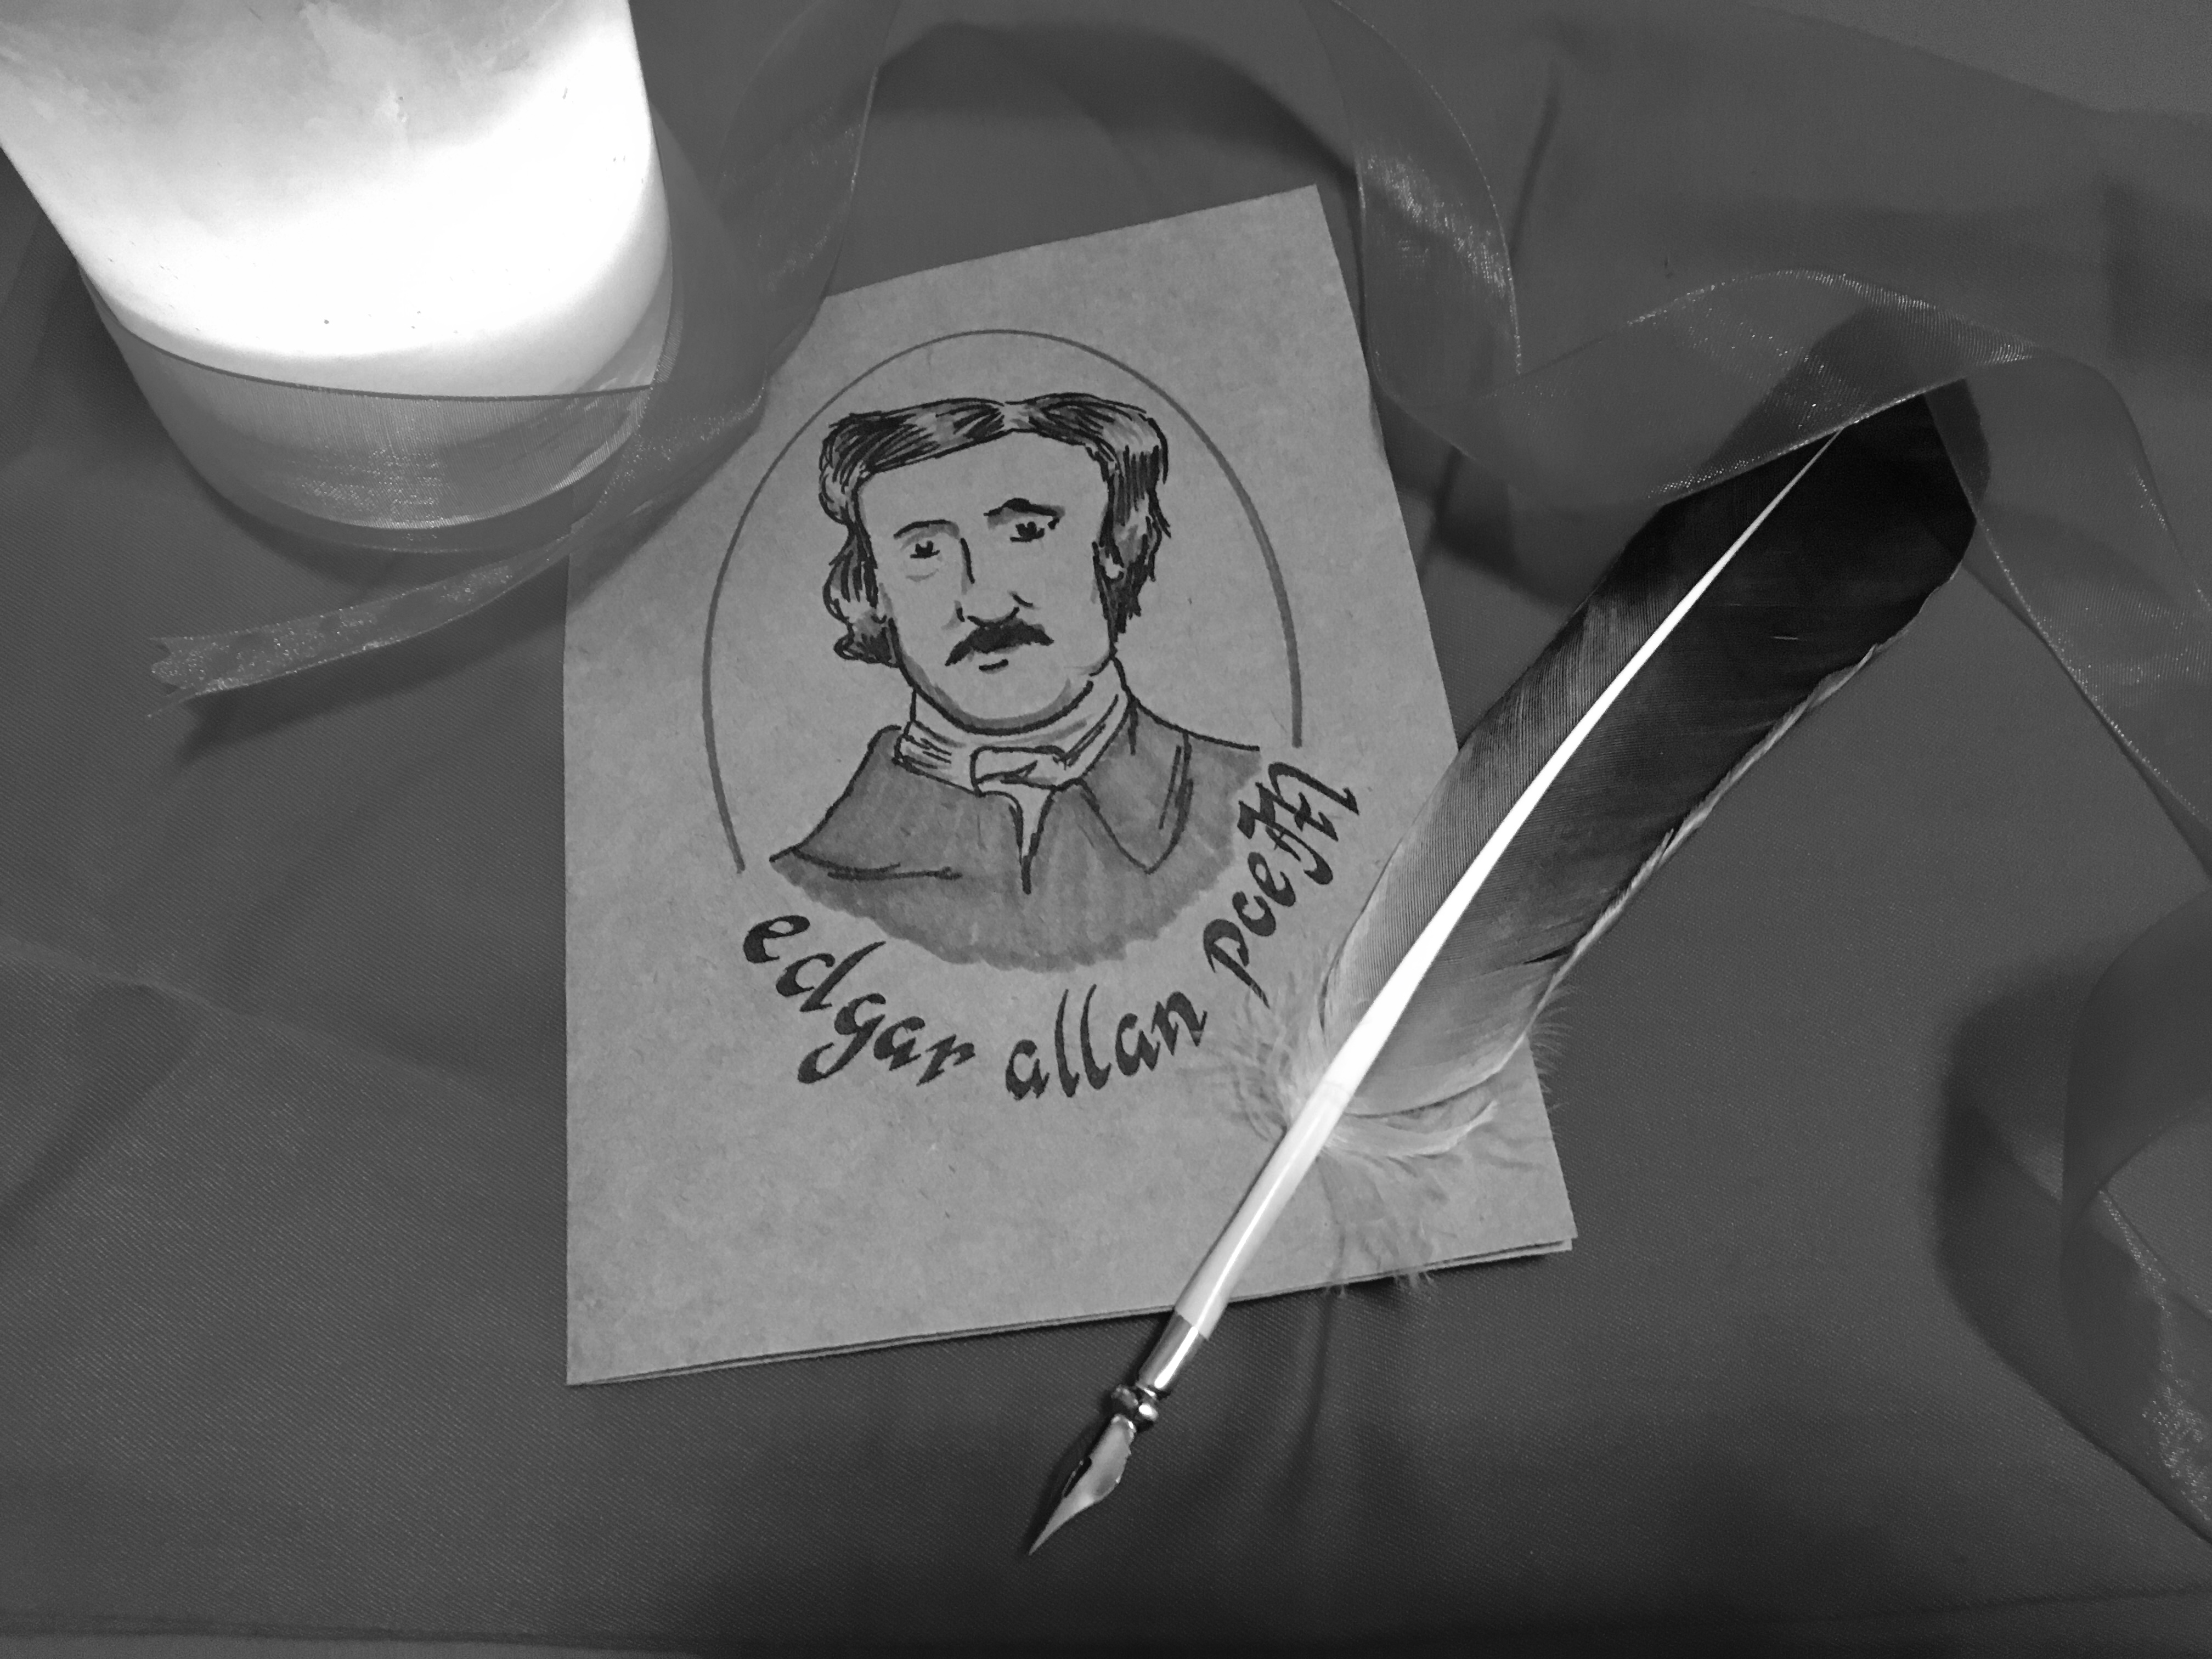 edgar allan poe